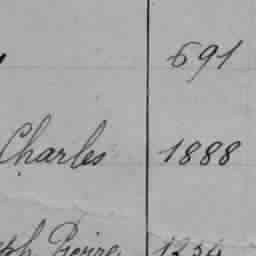 691
Charles 1888
ph Pierre 1234